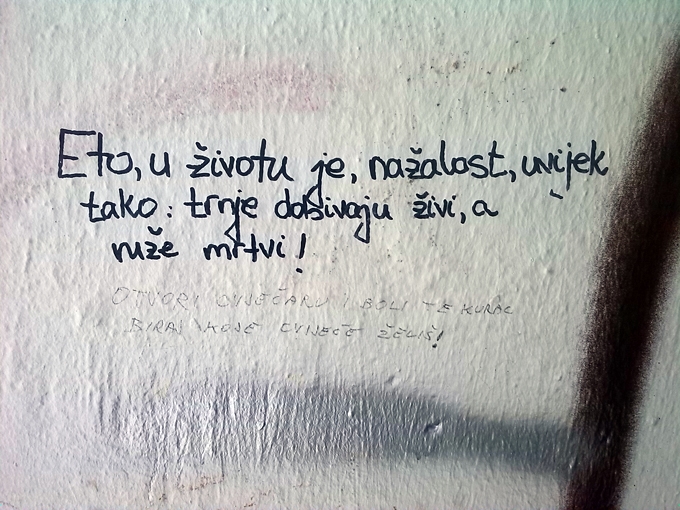 Eto, u životu je, nažalost, uvijek
tako: trnje dobivaju živi, a
ruže mrtvi!
OTVORI CVJEĆARU I BOLI TE KURAC
BIRAJ KOJE CVIJEĆE ŽELIŠ!